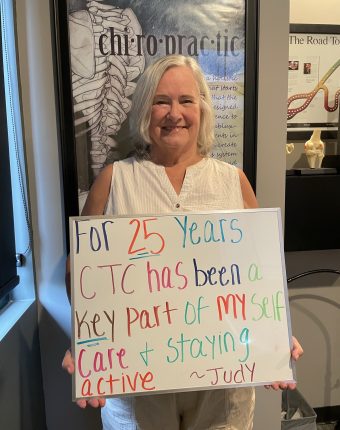 chi·ro·prac·tic
The Road To
For 25 Years
CTC has been a
key part of my self
Care & staying
active ~Judy